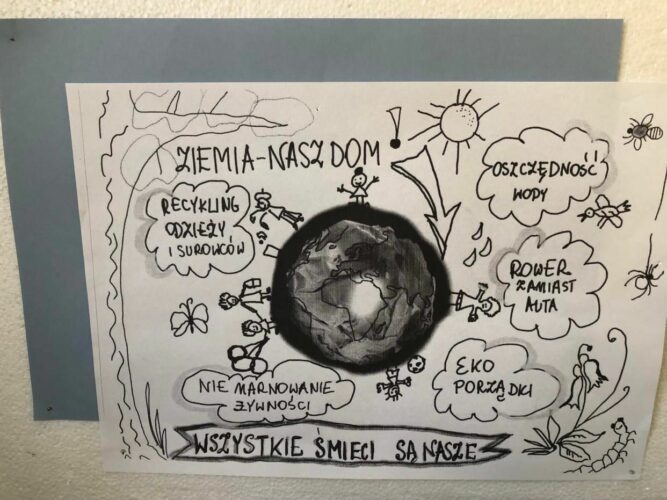 ZIEMIA-NASZ DOM!
RECYKLING
ODZIEŻY
I SUROWCÓW
OSZCZĘDNOŚĆ
WODY
ROWER
ZAMIAST
AUTA
NIE MARNOWANIE
ŻYWNOŚCI
EKO
PORZĄDKI
WSZYSTKIE ŚMIECI SĄ NASZE